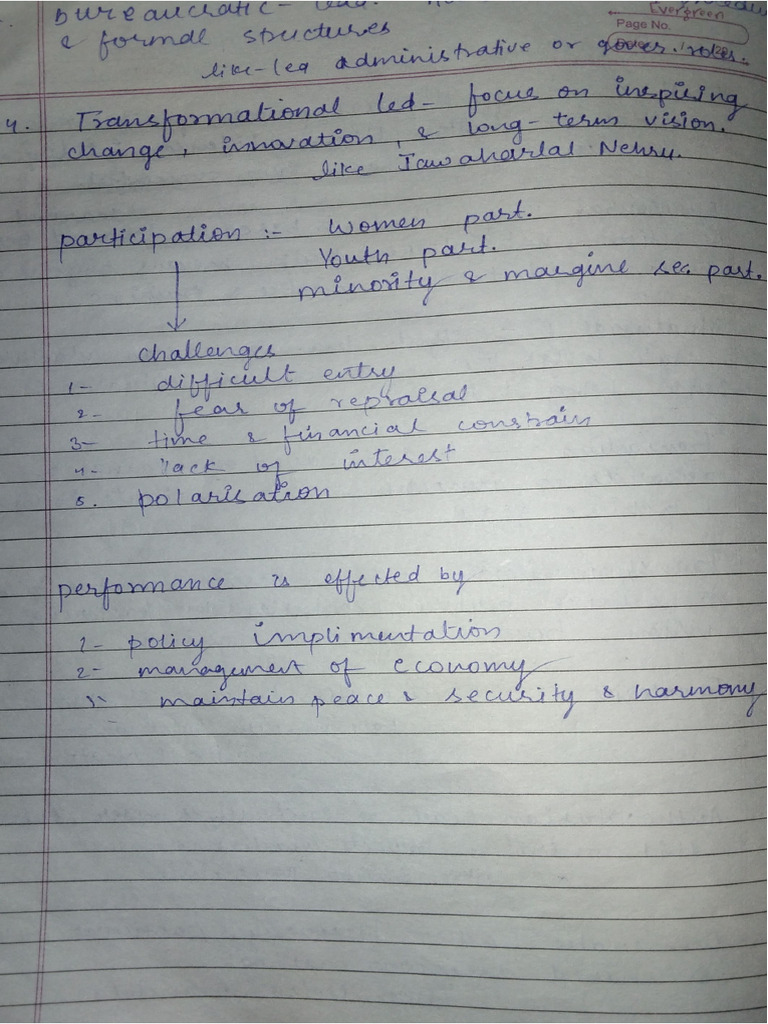 bureaucratic-
Evergreen
Page No.
& formal structures
like-led administrative or gover. roles.
4. Transformational led- focus on inspiring
change, innovation, & long-term vision.
like Jawaharlal Nehru.
participation :- Women part.
Youth part.
minority & margine sec. part.
challenges
1- difficult entry
2- fear of reprasal
3- time & financial constrain
4- lack of interest
5. polarisation
performance is effected by
1- policy implimentation
2- management of economy
maintain peace & security & harmony